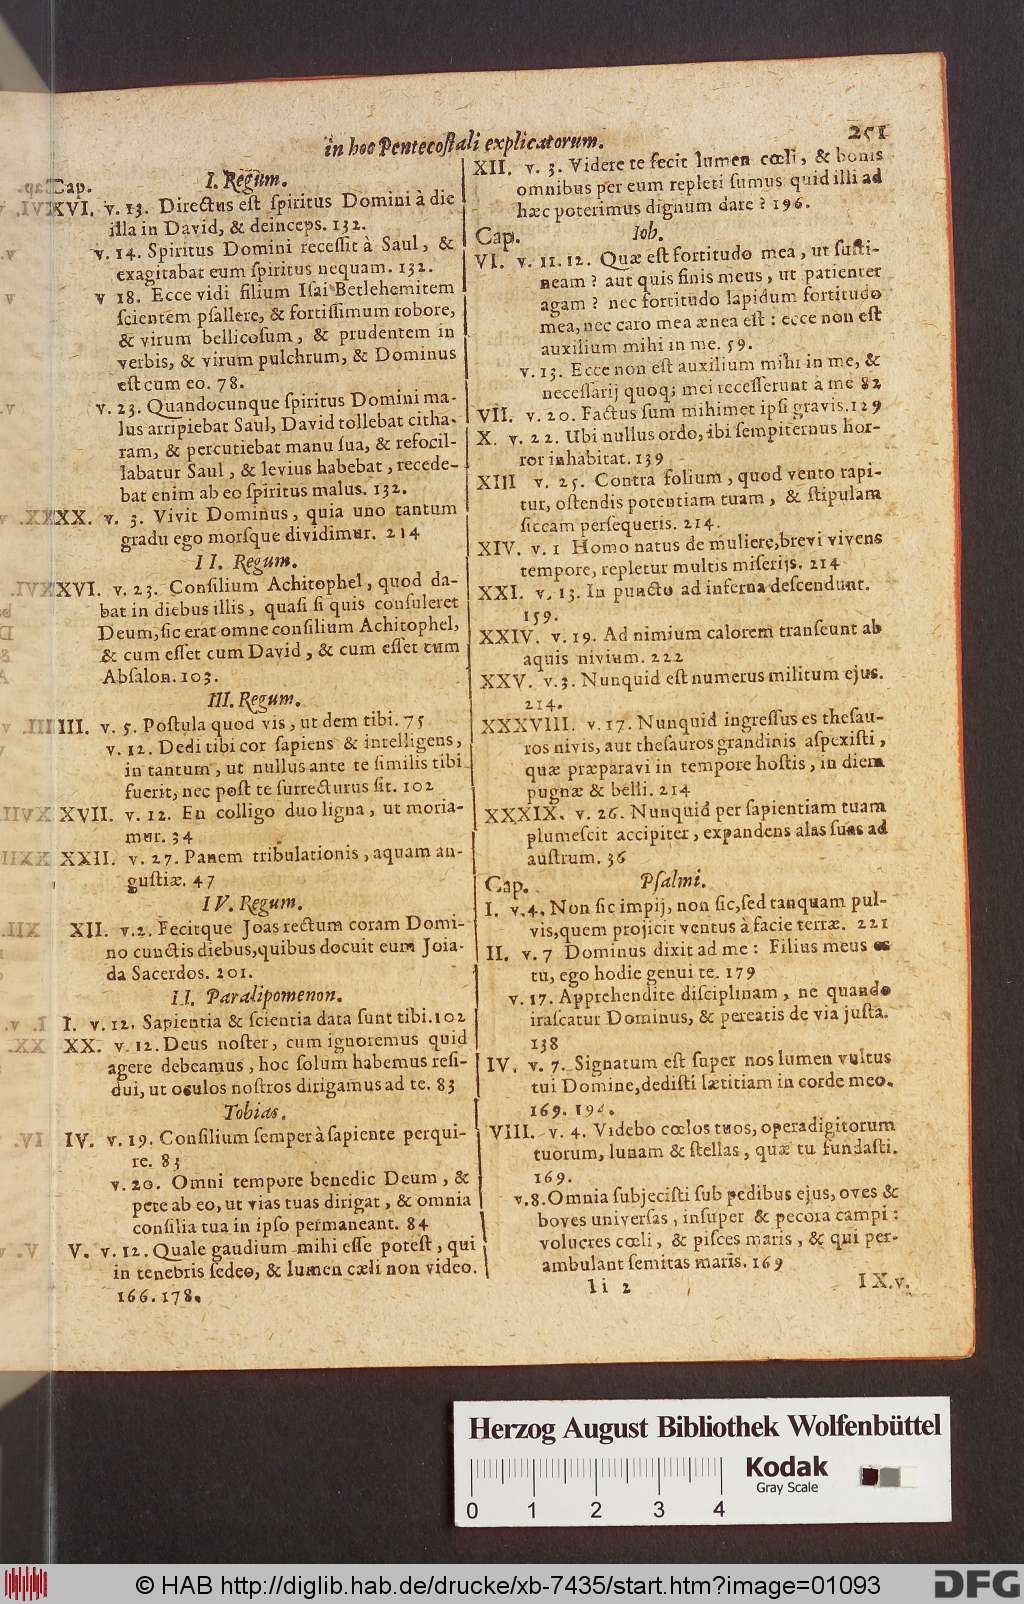 in hoc Pentecoſtali explicatorum.
251
Cap. I. Regum.
XVI. v. 13. Directus eſt ſpiritus Domini à die
illa in David, & deinceps. 132.
v. 14. Spiritus Domini receſſit à Saul, &
exagitabat eum ſpiritus nequam. 132.
v 18. Ecce vidi filium Iſai Betlehemitem
ſcientem pſallere, & fortiſſimum robore,
& virum bellicoſum, & prudentem in
verbis, & virum pulchrum, & Dominus
eſt cum eo. 78.
v. 23. Quandocunque ſpiritus Domini ma-
lus arripiebat Saul, David tollebat citha-
ram, & percutiebat manu ſua, & refocil-
labatur Saul, & levius habebat, recede-
bat enim ab eo ſpiritus malus. 132.
XX. v. 3. Vivit Dominus, quia uno tantum
gradu ego morſque dividimur. 214
II. Regum.
XVI. v. 23. Conſilium Achitophel, quod da-
bat in diebus illis, quaſi ſi quis conſuleret
Deum, ſic erat omne conſilium Achitophel,
& cum eſſet cum David, & cum eſſet cum
Abſalon. 103.
III. Regum.
III. v. 5. Poſtula quod vis, ut dem tibi. 75
v. 12. Dedi tibi cor ſapiens & intelligens,
in tantum, ut nullus ante te ſimilis tibi
fuerit, nec poſt te ſurrecturus ſit. 102
XVII. v. 12. En colligo duo ligna, ut moria-
mur. 34
XXII. v. 27. Panem tribulationis, aquam an-
guſtiæ. 47
IV. Regum.
XII. v. 2. Fecitque Joas rectum coram Domi-
no cunctis diebus, quibus docuit eum Joia-
da Sacerdos. 201.
II. Paralipomenon.
I. v. 12. Sapientia & ſcientia data ſunt tibi. 102
XX. v. 12. Deus noſter, cum ignoremus quid
agere debeamus, hoc ſolum habemus reſi-
dui, ut oculos noſtros dirigamus ad te. 83
Tobias.
IV. v. 19. Conſilium ſemper à ſapiente perqui-
re. 83
v. 20. Omni tempore benedic Deum, &
pete ab eo, ut vias tuas dirigat, & omnia
conſilia tua in ipſo permaneant. 84
V. v. 12. Quale gaudium mihi eſſe poteſt, qui
in tenebris ſedeo, & lumen cæli non video.
166. 178.
XII. v. 3. Videre te fecit lumen cœli, & bonis
omnibus per eum repleti ſumus quid illi ad
hæc poterimus dignum dare? 196.
Cap. Iob.
VI. v. 11. 12. Quæ eſt fortitudo mea, ut ſuſti-
neam? aut quis finis meus, ut patienter
agam? nec fortitudo lapidum fortitudo
mea, nec caro mea ænea eſt: ecce non eſt
auxilium mihi in me. 59.
v. 13. Ecce non eſt auxilium mihi in me, &
neceſſarij quoq; mei receſſerunt à me 82
VII. v. 20. Factus ſum mihimet ipſi gravis. 129
X. v. 22. Ubi nullus ordo, ibi ſempiternus hor-
ror inhabitat. 139
XIII v. 25. Contra folium, quod vento rapi-
tur, oſtendis potentiam tuam, & ſtipulam
ſiccam perſequeris. 214.
XIV. v. 1 Homo natus de muliere, brevi vivens
tempore, repletur multis miſerijs. 214
XXI. v. 13. In puncto ad inferna deſcendunt.
159.
XXIV. v. 19. Ad nimium calorem tranſeunt ab
aquis nivium. 222
XXV. v. 3. Nunquid eſt numerus militum ejus.
214.
XXXVIII. v. 17. Nunquid ingreſſus es theſau-
ros nivis, aut theſauros grandinis aſpexiſti,
quæ præparavi in tempore hoſtis, in diem
pugnæ & belli. 214
XXXIX. v. 26. Nunquid per ſapientiam tuam
plumeſcit accipiter, expandens alas ſuas ad
auſtrum. 36
Cap. Pſalmi.
I. v. 4. Non ſic impij, non ſic, ſed tanquam pul-
vis, quem projicit ventus à facie terræ. 221
II. v. 7 Dominus dixit ad me: Filius meus es
tu, ego hodie genui te. 179
v. 17. Apprehendite diſciplinam, ne quando
iraſcatur Dominus, & pereatis de via juſta.
138
IV. v. 7. Signatum eſt ſuper nos lumen vultus
tui Domine, dediſti lætitiam in corde meo.
169.
VIII. v. 4. Videbo cœlos tuos, opera digitorum
tuorum, lunam & ſtellas, quæ tu fundaſti.
169.
v. 8. Omnia ſubjeciſti ſub pedibus ejus, oves &
boves univerſas, inſuper & pecora campi:
volucres cœli, & piſces maris, & qui per-
ambulant ſemitas maris. 169
Ii 2
IX. v.
Herzog August Bibliothek Wolfenbüttel
Kodak
Gray Scale
0 1 2 3 4
© HAB http://diglib.hab.de/drucke/xb-7435/start.htm?image=01093
DFG